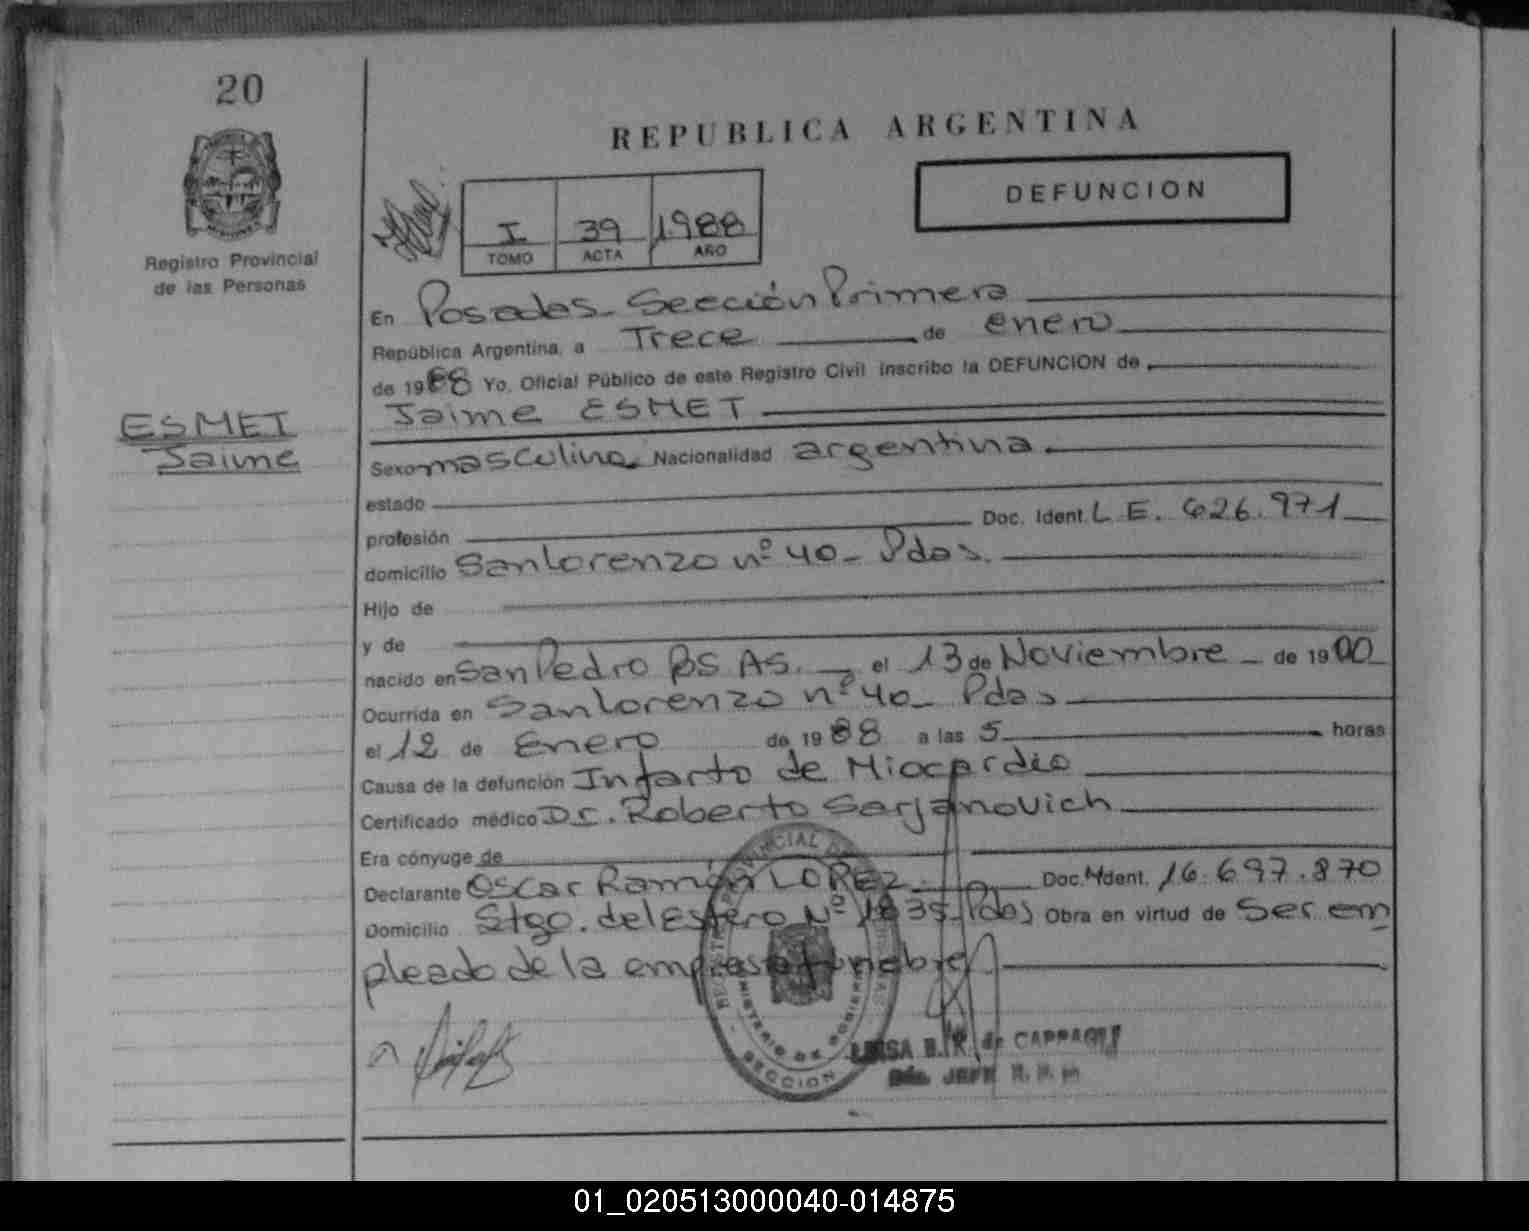 20
REPUBLICA ARGENTINA
DEFUNCION
I 39 1988
TOMO ACTA AÑO
Registro Provincial
de las Personas
En Posadas Sección Primera
República Argentina, a Trece de enero
de 1988 Yo, Oficial Público de este Registro Civil inscribo la DEFUNCION de
Jaime ESMET
ESMET
Jaime
Sexo masculino Nacionalidad argentina
estado
profesión Doc. Ident. L.E. 626.971
domicilio San Lorenzo nº 40 - Pdas.
Hijo de
y de
nacido en San Pedro BS. AS. el 13 de Noviembre de 1900
Ocurrida en San Lorenzo nº 40 - Pdas
el 12 de Enero de 1988 a las 5 horas
Causa de la defunción Infarto de Miocardio
Certificado médico Dr. Roberto Sarjanovich
Era cónyuge de
Declarante Oscar Ramón LOPEZ Doc. Ident. 16.697.870
Domicilio Stgo. del Estero Nº 1835 Pdas Obra en virtud de Ser em
pleado de la empresa fúnebre
REGISTRO PROVINCIAL DE LAS PERSONAS
MINISTERIO DE GOBIERNO
SECCION
LUISA B. de
JEFE
01_020513000040-014875